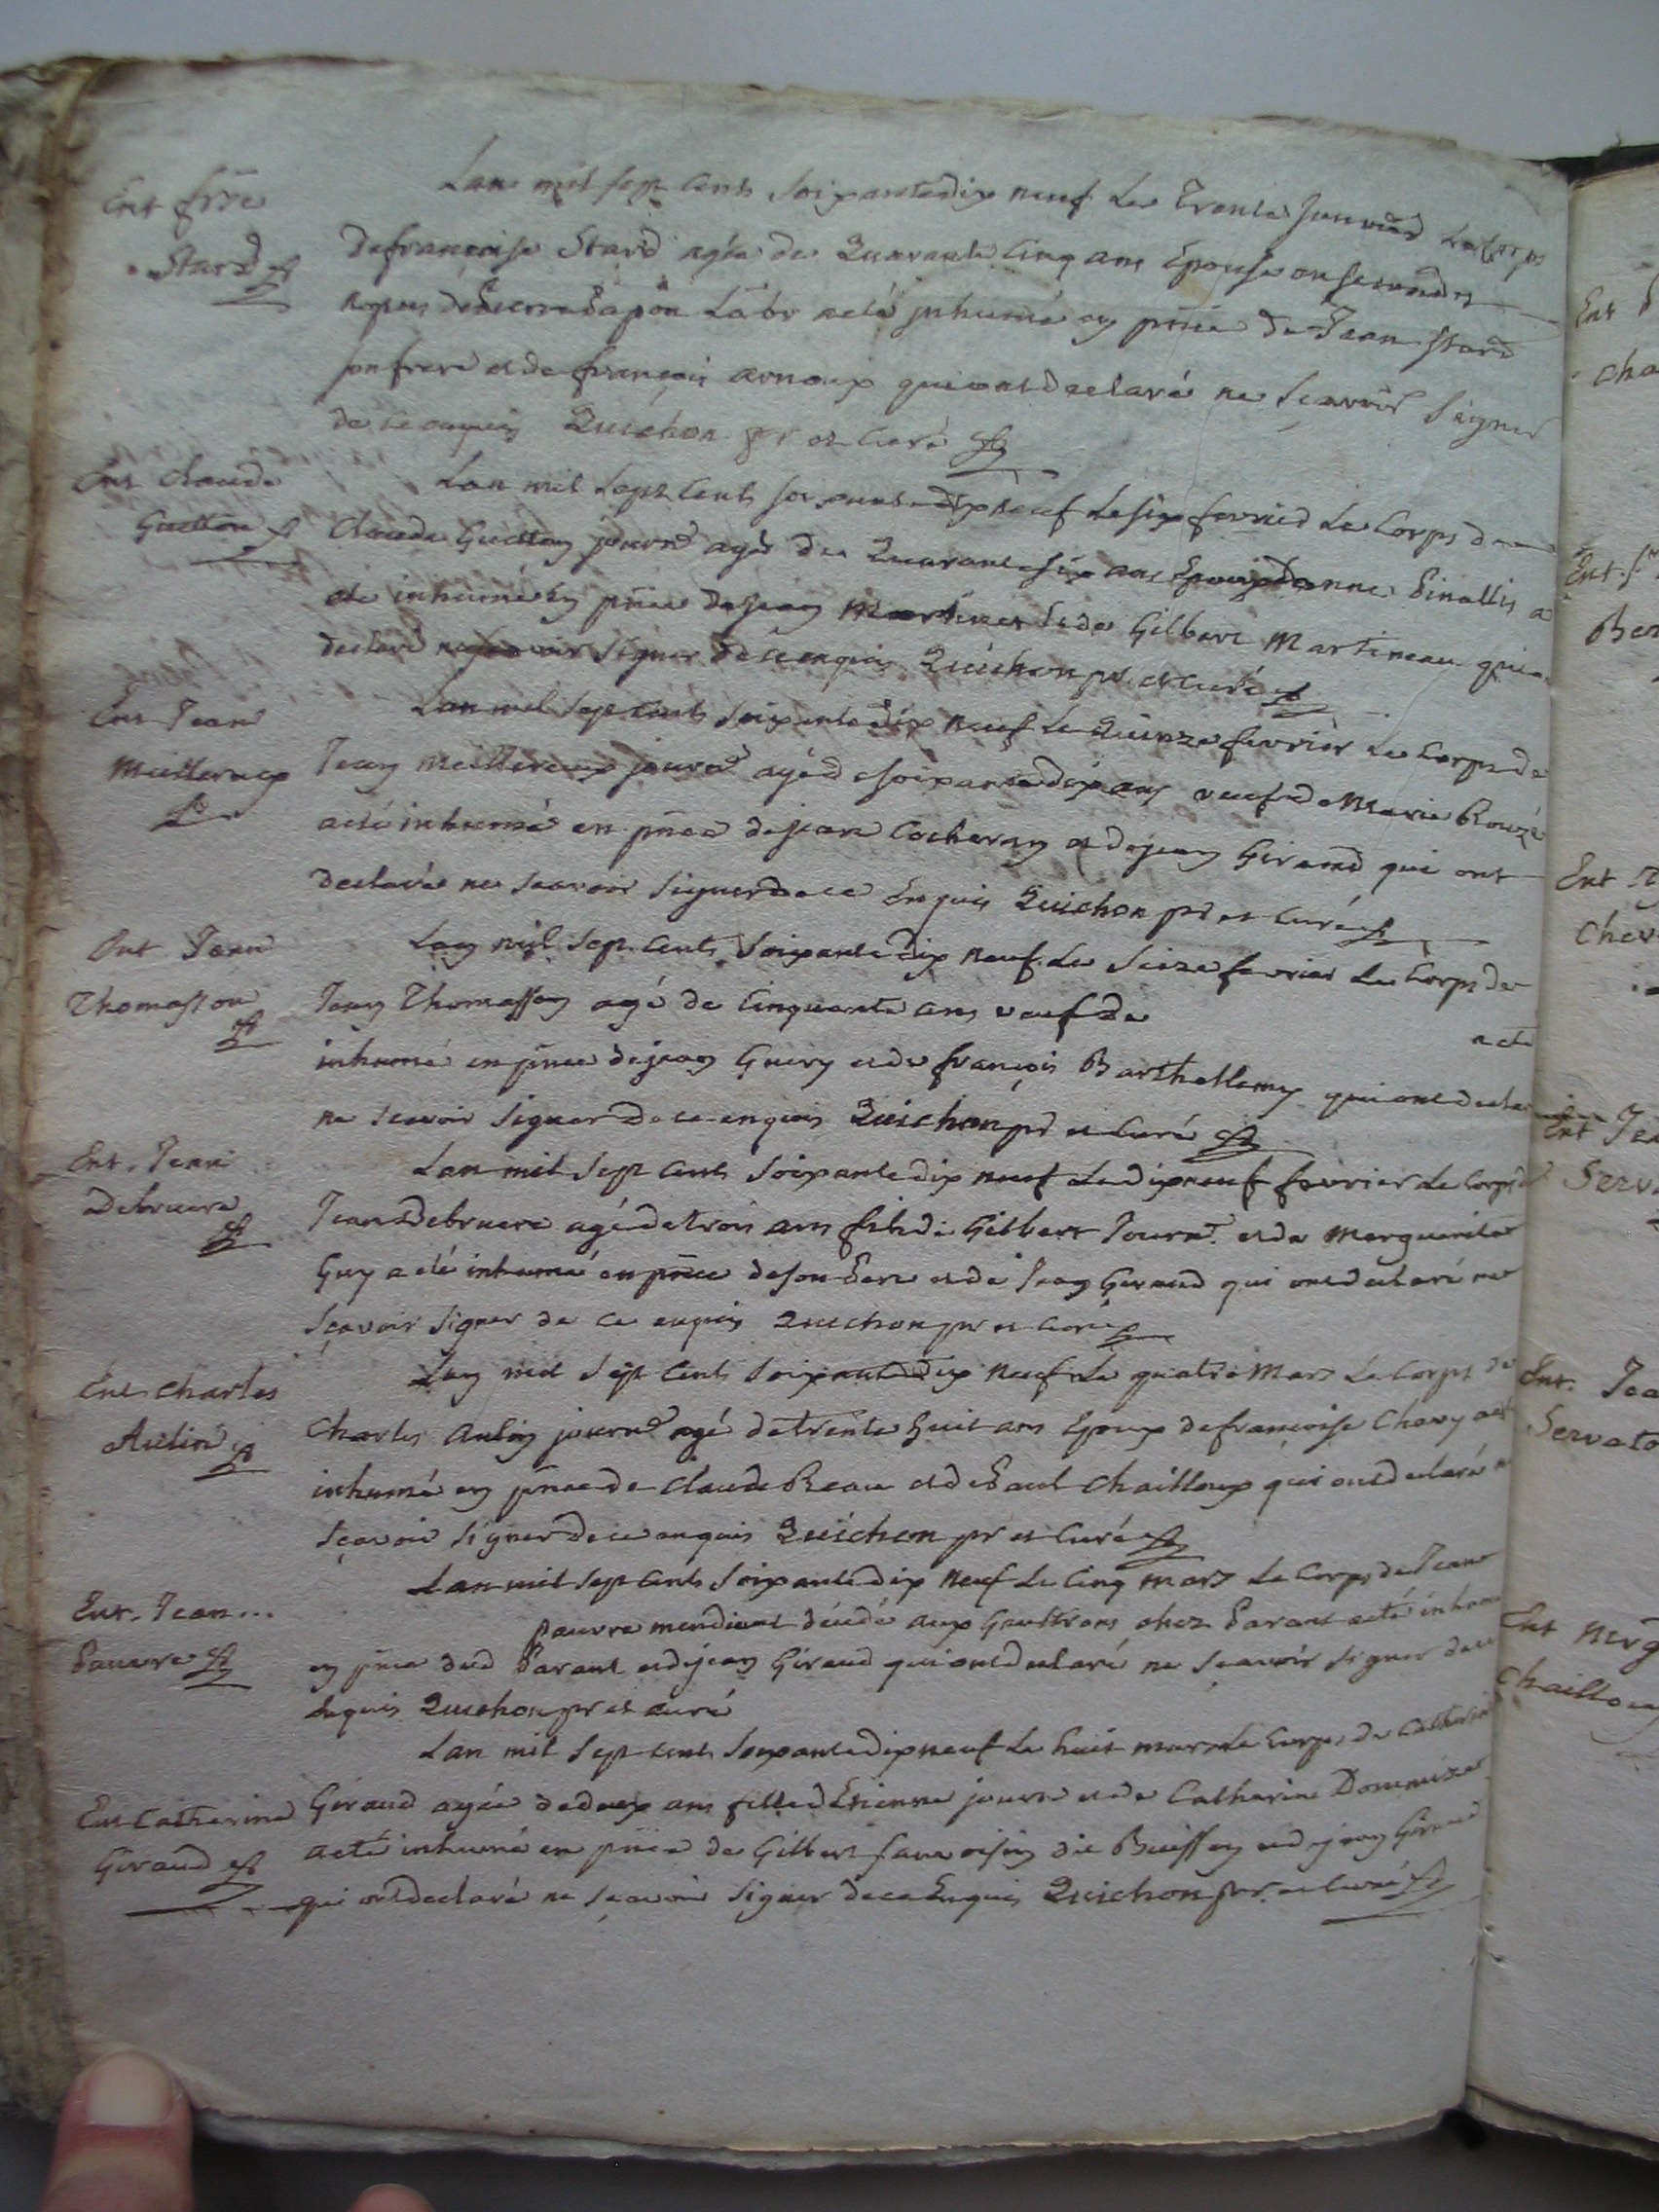 Ent frse
Stard
Lan mil sept cents soixantedix neuf le Trente Janvier le corps
de françoise Stard agée de Quarante cinq ans Epouse en secondes
nopces de Pierre Lab a eté inhumé en pnce de Jean Stard
son frere et de françois arnoux qui ont declaré ne sçavoir signer
de ce enquis Quichon pr et Curé
Ent Claude
Guetton
Lan mil sept cents soixante dix neuf le six fevrier le Corps de
Claude Guetton journ agé de Quarante six ans Epoux danne Pinallis a
ete inhumé en pnce de jean et de Gilbert Martineau qui
declaré ne sçavoir signer de ce enquis Quichon pr et Curé
Ent Jean
Meitteraux
Lan mil sept cents soixante dix neuf le Quinze fevrier le Corps de
Jean Meitteraux journ agé de soixante dix ans veuf de Marie Rouzé
a eté inhumé en pnce de jean Cocheran et de jean Giraud qui ont
declaré ne scavoir signer de ce Enquis Quichon pr et Curé
Ent Jean
Thomasson
Lan mil sept cents soixante dix neuf le seize fevrier le Corps de
Jean Thomasson agé de Cinquante ans veuf de
a eté
inhumé en pnce de jean Guery et de françois Barthellemy qui ont decla
ne scavoir signer de ce enquis Quichon pr et Curé
Ent. Jean
Debruere
Lan mil sept cents soixante dix neuf le dix neuf fevrier le Corps de
Jean Debruere agé de trois ans fils de Gilbert Journ. et de Marguerite
Guy a eté inhumé en pnce de son Pere et de Jean Giraud qui ont declaré ne
sçavoir signer de ce enquis Quichon pr et Curé
Ent Charles
Aulin
Lan mil sept cents soixante dix neuf le quatre Mars le Corps de
Charles Aulin journ agé de trente huit ans Epoux de françoise Chavy a eté
inhumé en pnce de Claude Beau et de Paul Chailloux qui ont declaré ne
sçavoir signer de ce enquis Quichon pr et Curé
Ent. Jean...
Pauvre
Lan mil sept cents soixante dix neuf le Cinq mars le Corps de Jean
pauvre mendiant décédé aux Gauttrons chez Parant a eté inhumé
en pnce dud Parant et de jean Giraud qui ont declaré ne scavoir signer de ce
Enquis Quichon pr et curé
Ent Catharine
Giraud
Lan mil sept cents soixante dix neuf le huit mars le Corps de Catharine
Giraud agée de deux ans fille d'Etienne journ et de Catharine
a eté inhumé en pnce de Gilbert dit Buisson et de jean Giraud
qui ont declaré ne sçavoir signer de ce Enquis Quichon pr. et Curé
Ent
Cha
Ent.
Ber
Ent
Chev
Ent Jea
Serva
Ent. Jea
Servato
Ent Marg
Chailloux